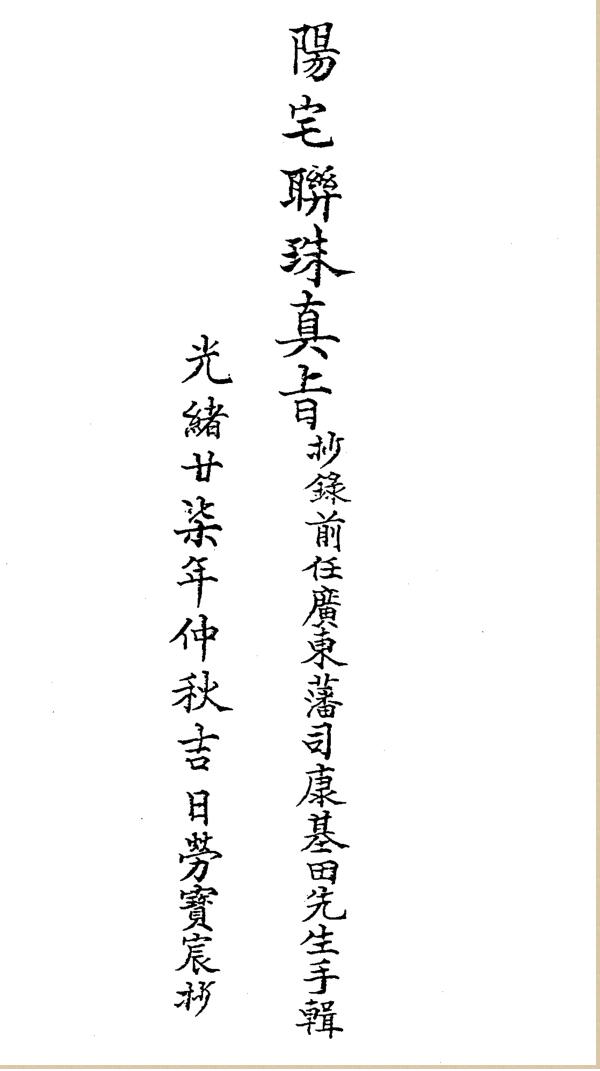 陽宅聯珠真旨抄錄前任廣東藩司康基田先生手輯
光緒廿柒年仲秋吉日勞寶宸抄